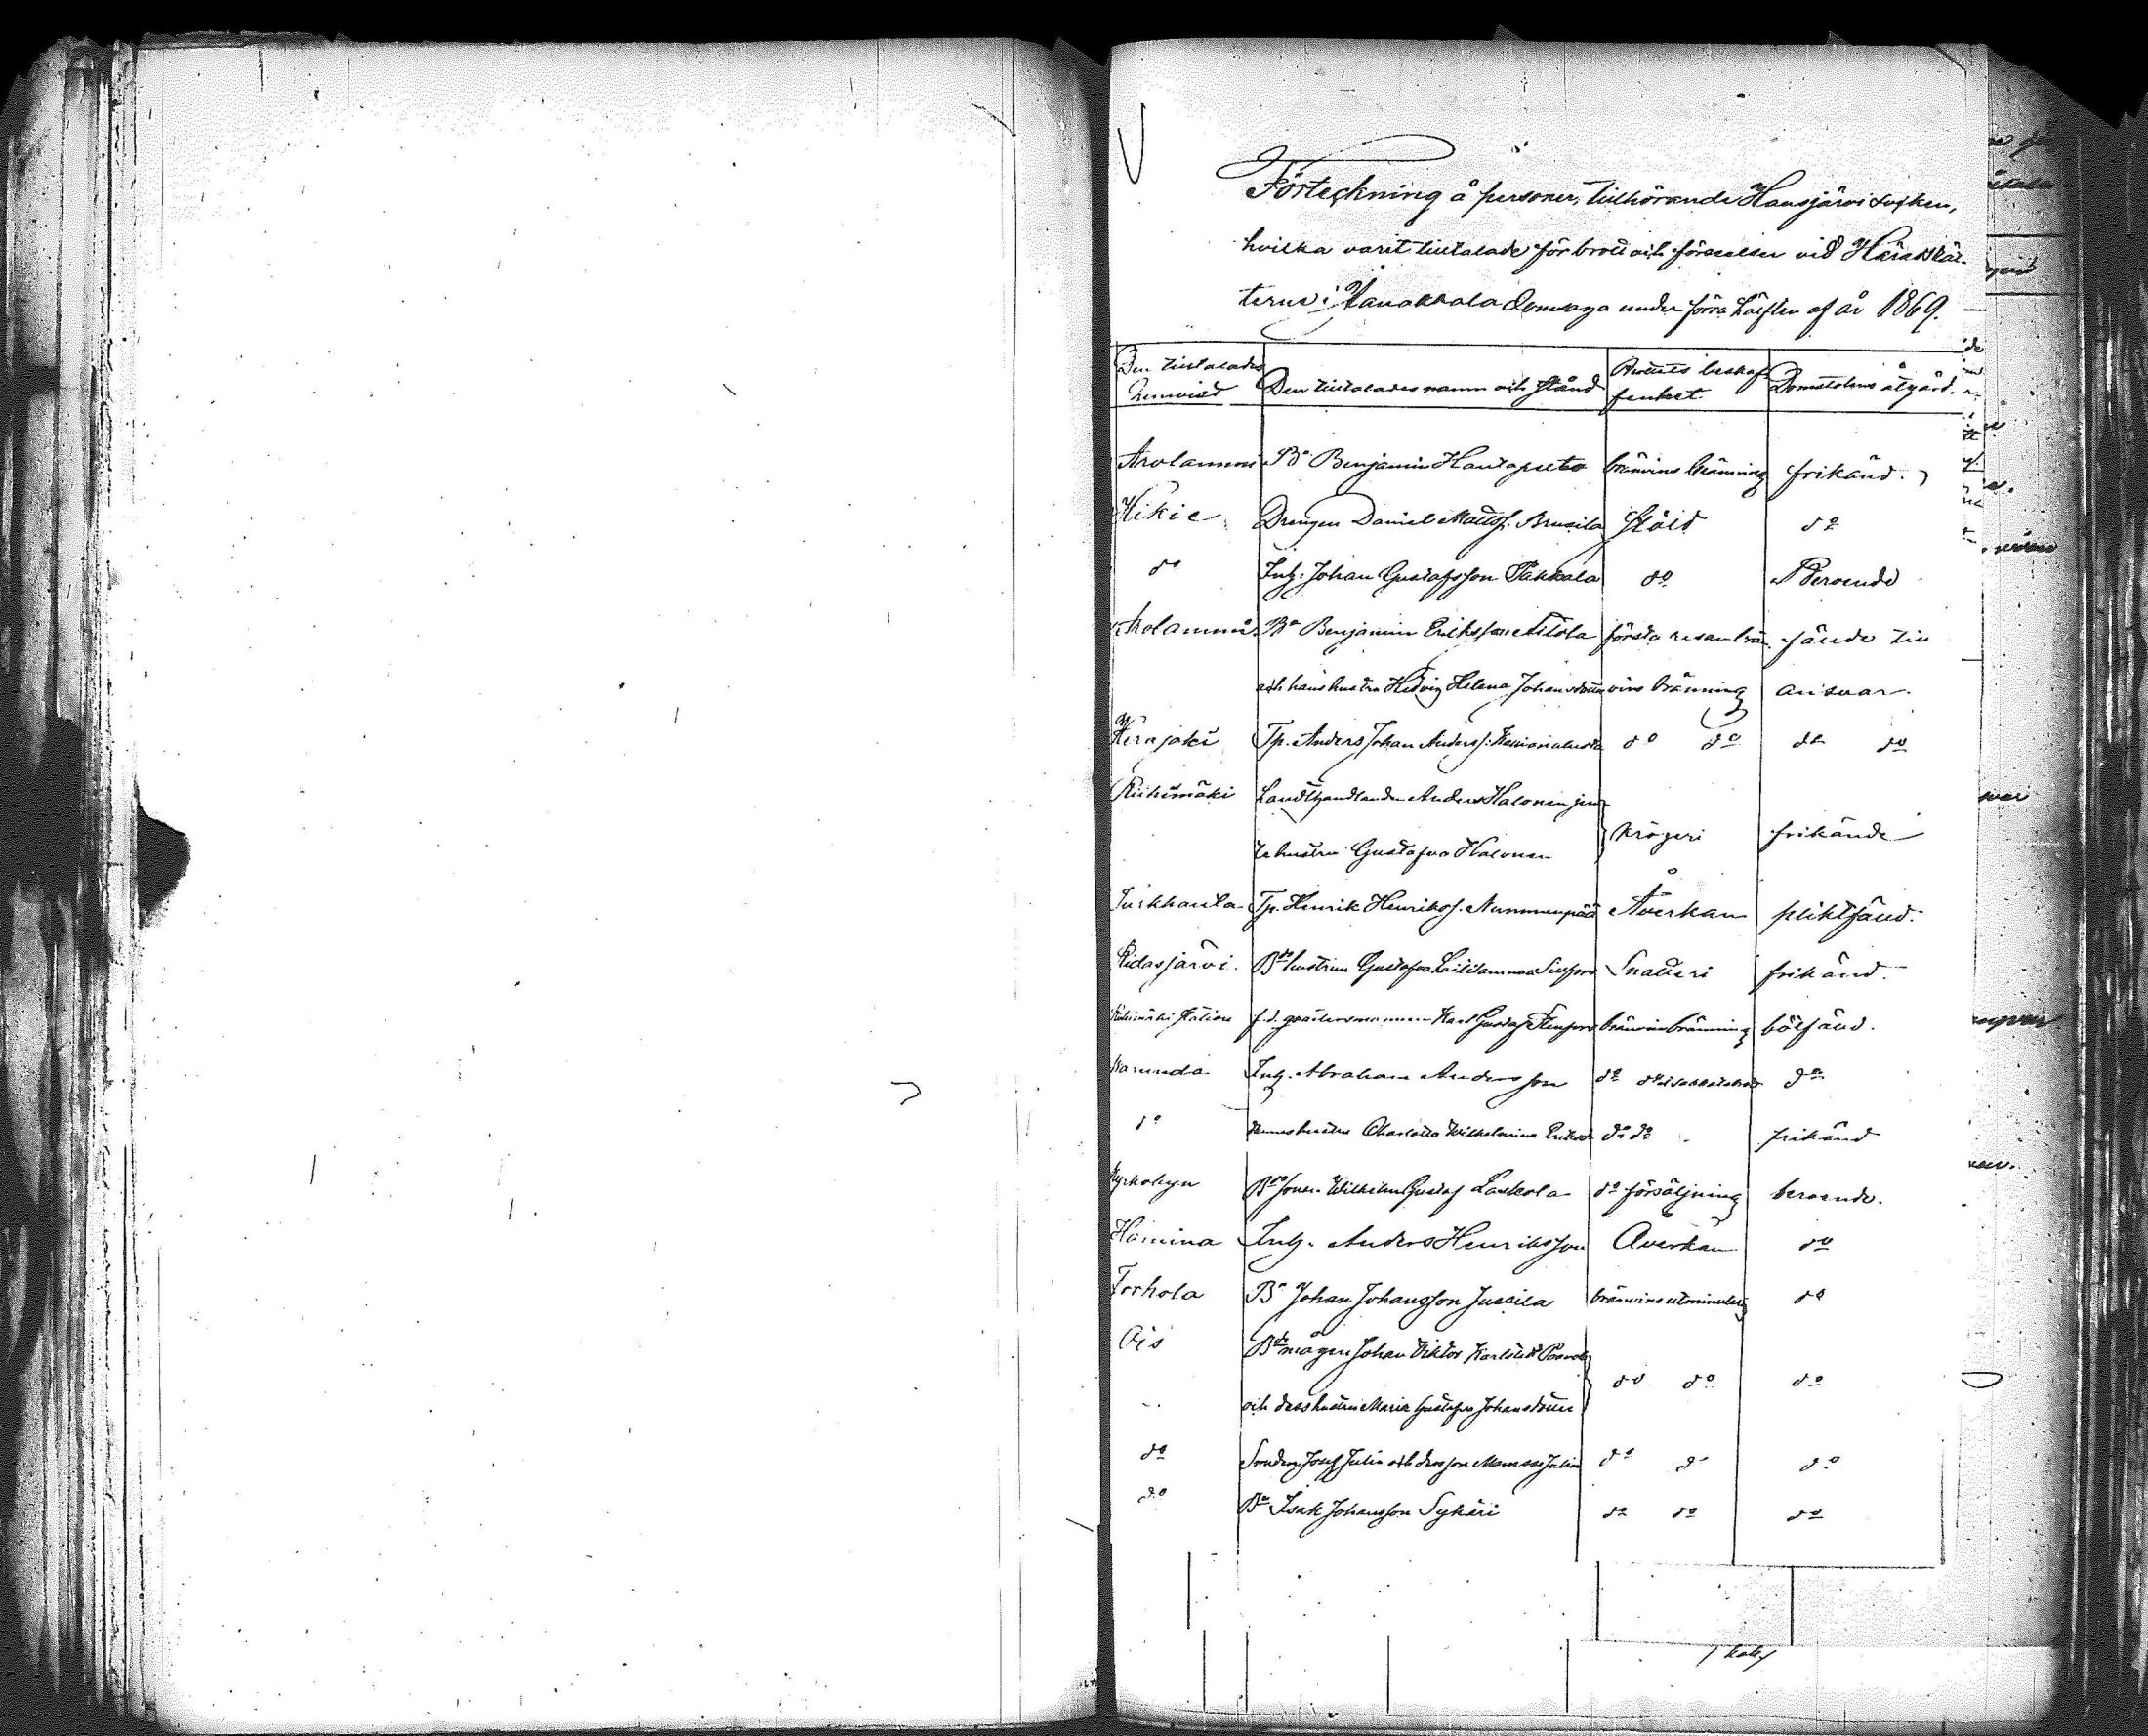 Förteckning å personer, tillhörande Hausjärvi socken,
hvilka varit tilltalade för brott och förseelser vid Häradsrät-
terne i Janakkala Domsaga under förra hälften af år 1869.
Den tilltalades hemvist | Den tilltalades namn och stånd | Brottets beskaffenhet | Domstolens åtgärd.
Arolammi | Bn Benjamin Hautapelto | bränvins bränning | frikänd.
Hikie | Drengen Daniel Mattss. Brusila | Stöld | do
do | Inh: Johan Gustafsson Pakkala | do | Beroende
Arolammi | Bn Benjamin Eriksson Alitola | första resan brän- | fälde till
och hans hustru Hedvig Helena Johansdotter | vins bränning | ansvar.
Herajoki | Tp. Anders Johan Anderss. | do do | do do
Riihimäki | Landthandlanden Anders Halonen jem-
te hustru Gustafva Halonen | krögeri | frikände
Turkhauta | Tp. Henrik Henrikss. Nummenpää | Åverkan | pliktfäld.
Ridasjärvi. | Bdehustrun Gustafva | Snatteri | frikänd.
Riihimäki station | f.d. Karl Gustaf | bränvinsbränning | bötfäld.
Karunda | Inh. Abraham Andersson | do do | do
do | hustru Charlotta Wilhelmina Eriksd. | do do | frikänd
Kyrkobyn | Bdesonen Wilhelm Gustaf Laskola | do försäljning | beroende.
Hamina | Inh. Anders Henriksson | Åverkan | do
Torhola | Bn Johan Johansson Jussila | bränvins utminutering | do
Ois | Bdemågen Johan Viktor
och dess hustru Maria Gustafva Johansdotter | do do | do
do | Smeden Josef Julin och dess son Julin | do do | do
do | Bn Isak Johansson Sykäri | do do | do